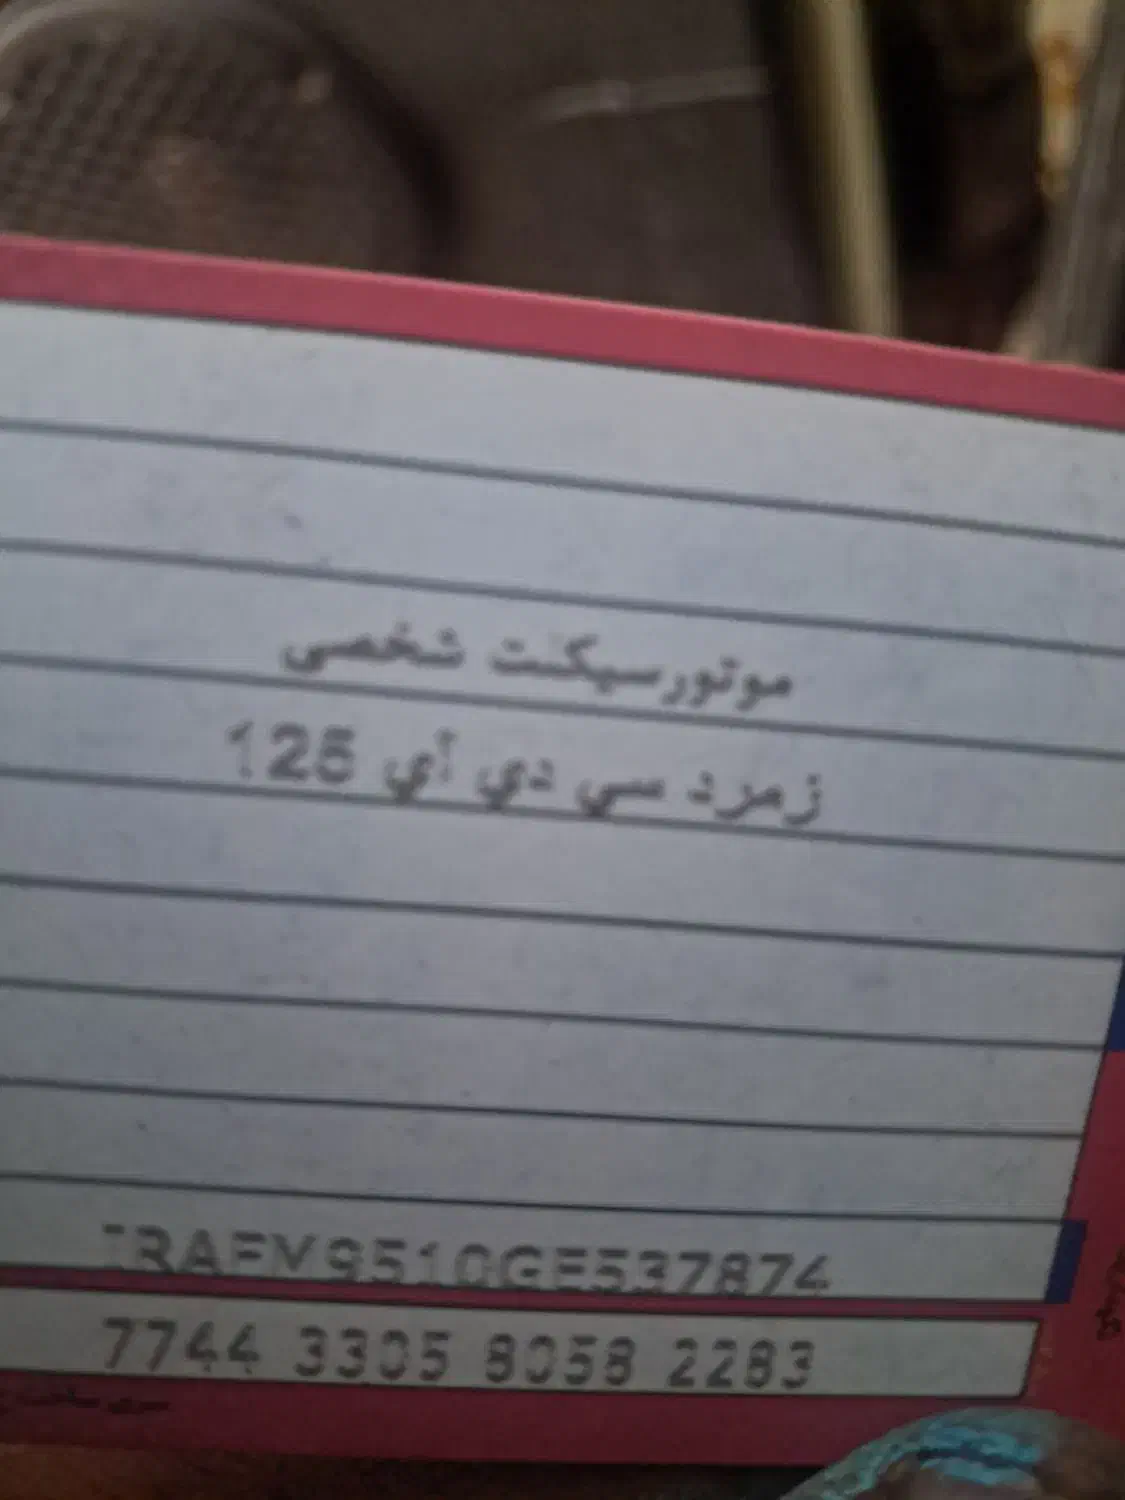 موتورسیکلت شخصی
زمرد سي دي آي 125
IRAFM9510GE537874
7744 3305 8058 2283